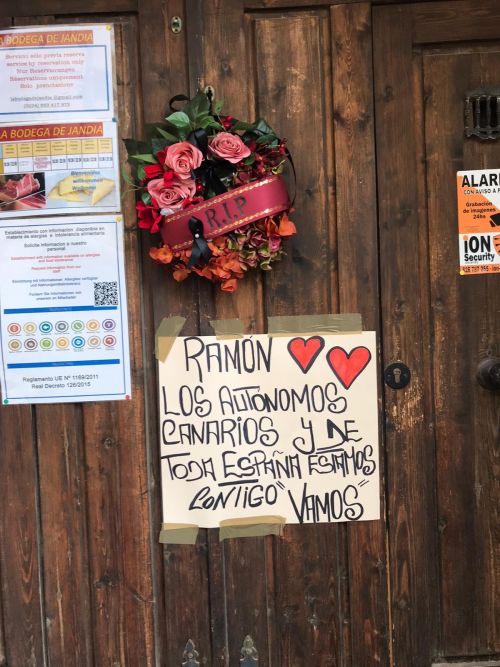 LA BODEGA DE JANDIA
Servicio solo previa reserva
service by reservation only
Nur Reservierungen
Réservations uniquement
Solo prenotazione
LA BODEGA DE JANDIA
Bienvenidos
welcome
R.I.P
RAMÓN
LOS AUTONOMOS
CANARIOS Y DE
TODA ESPAÑA ESTAMOS
CONTIGO "VAMOS"
Establecimiento con información disponible en
materia de alergias e intolerancia alimentaria
Solicite información a nuestro
personal
Reglamento UE Nº 1169/2011
Real Decreto 126/2015
ALAR
CON AVISO A P
Grabación
de imagenes
24h
iON
Security